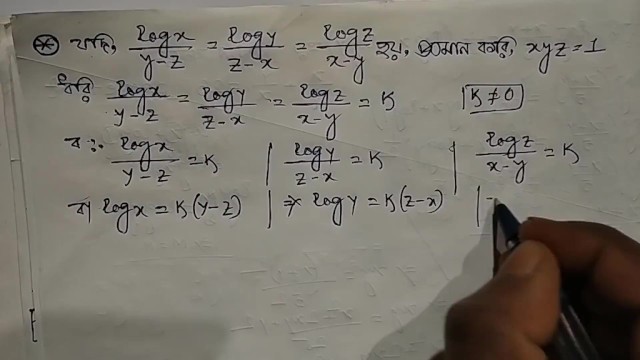 ⊛ যদি, logx/y-z = logy/z-x = logz/x-y হয়, প্রমাণ করি, xyz = 1
ধরি logx/y-z = logy/z-x = logz/x-y = K K ≠ 0
∴ logx/y-z = K | logy/z-x = K | logz/x-y = K
বা logx = K(y-z) | ⇒ logy = K(z-x) |